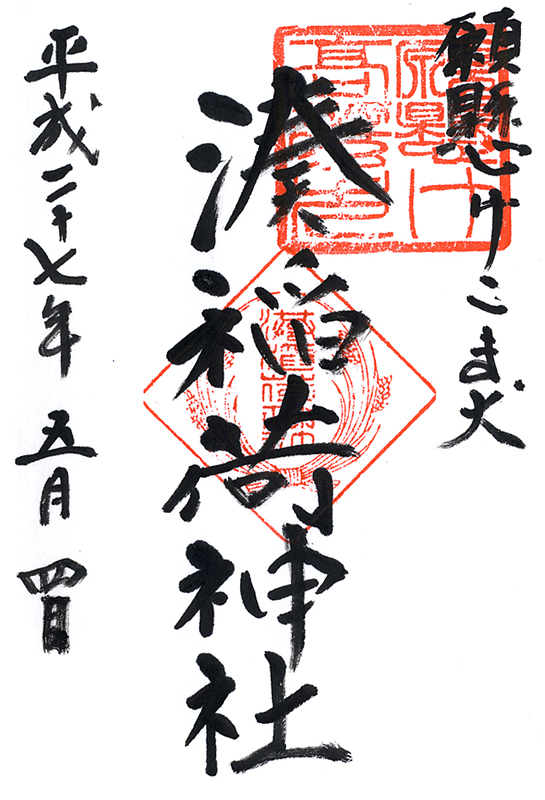 願懸けこま犬
湊稲荷神社
平成二十七年 五月 四日